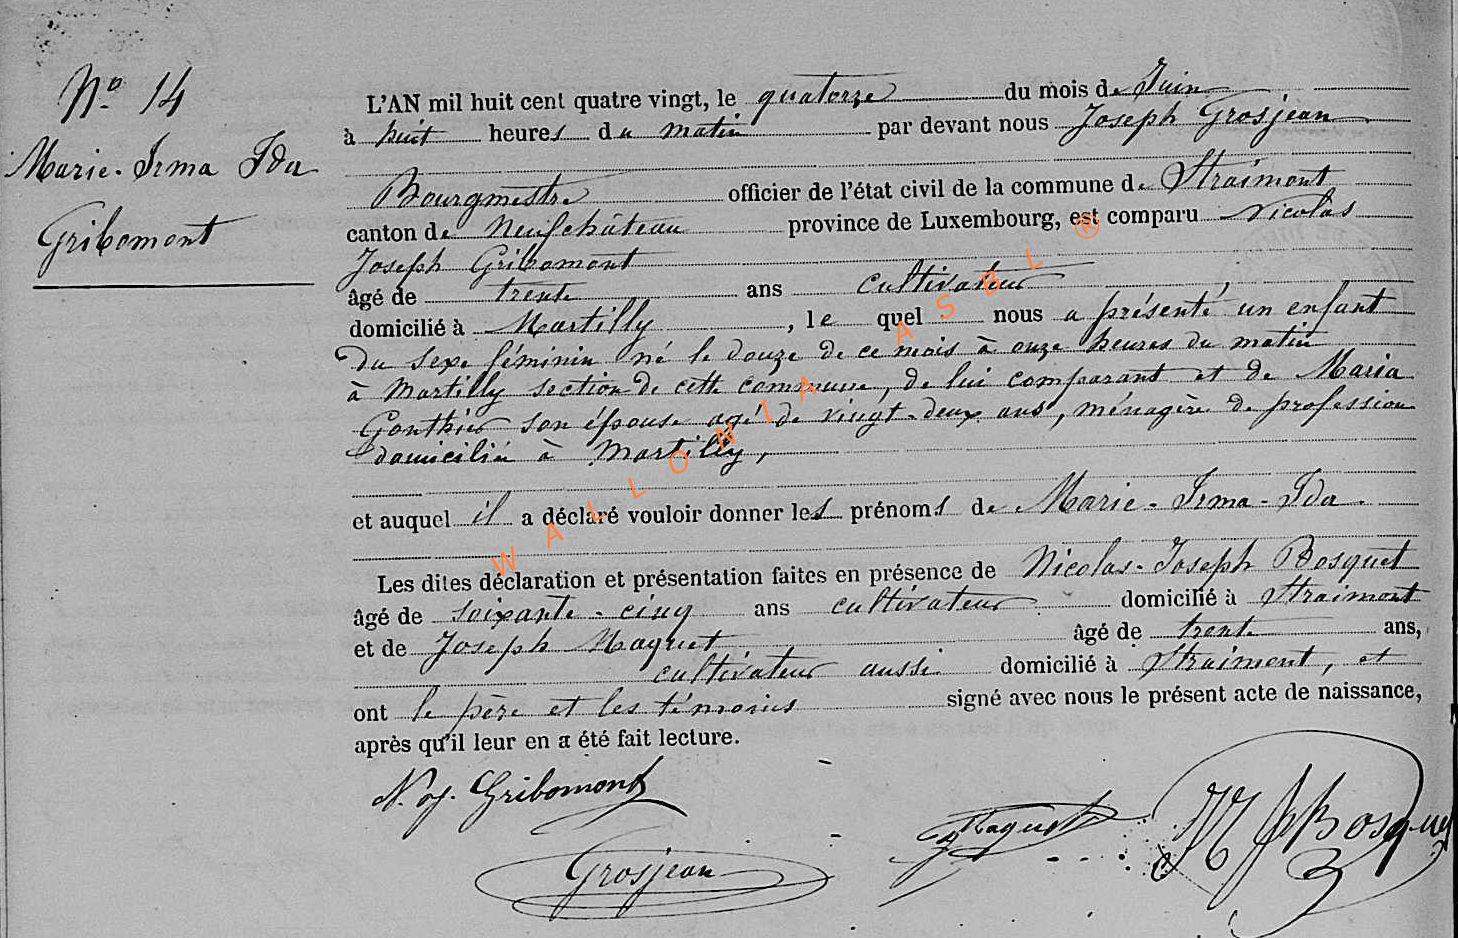 N° 14
Marie-Irma Ida
Gribomont
L'AN mil huit cent quatre vingt, le quatorze du mois de Juin
à huit heures du matin par devant nous Joseph Grosjean
Bourgmestre officier de l'état civil de la commune de Straimont
canton de Neufchâteau province de Luxembourg, est comparu Nicolas
Joseph Gribomont
âgé de trente ans cultivateur,
domicilié à Martilly, le quel nous a présenté un enfant
du sexe féminin né le douze de ce mois à onze heures du matin
à Martilly section de cette commune, de lui comparant et de Maria
Gonthier son épouse agé de vingt-deux ans, ménagère de profession
domiciliée à Martilly,
et auquel il a déclaré vouloir donner les prénoms de Marie-Irma-Ida.
Les dites déclaration et présentation faites en présence de Nicolas-Joseph Bosquet
âgé de soixante-cinq ans cultivateur domicilié à Straimont
et de Joseph Maquet âgé de trente ans,
cultivateur aussi domicilié à Straimont, et
ont le père et les témoins signé avec nous le présent acte de naissance,
après qu'il leur en a été fait lecture.
N. J. Gribomont
J Maquet
N J Bosquet
Grosjean
WALLONIA ASBL ®